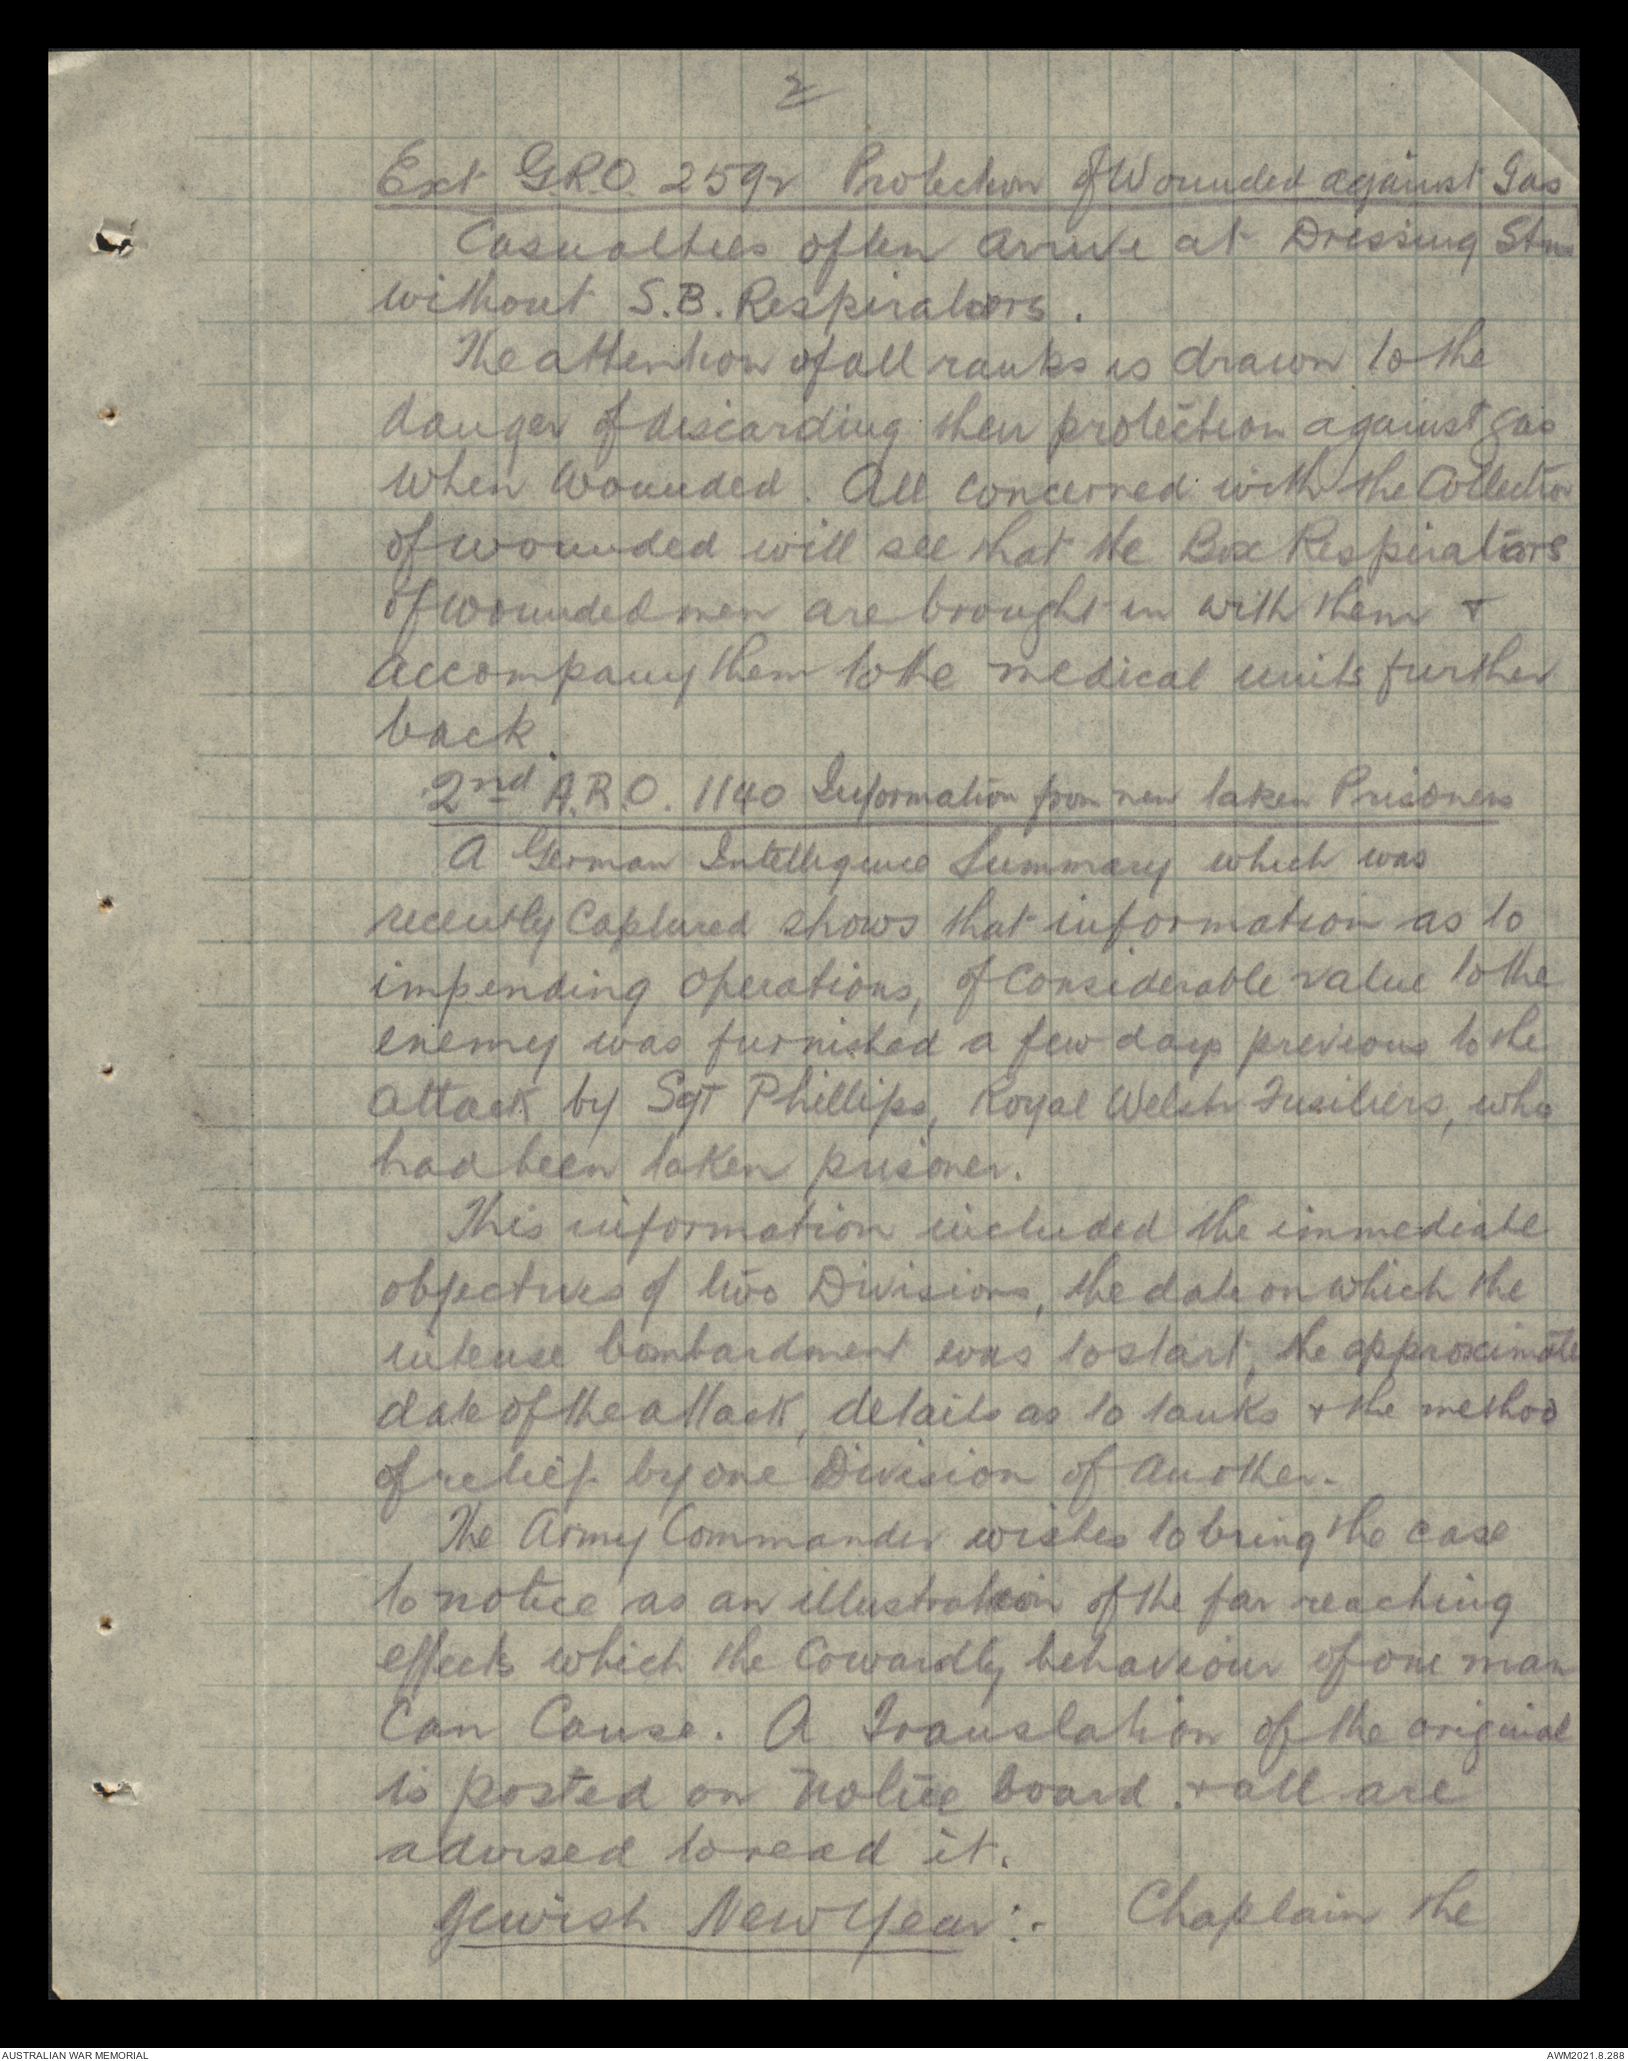 2
Ext G.R.O. 2592 Protection of Wounded against Gas
Casualties often arrive at Dressing Stns
without S.B. Respirators.
The attention of all ranks is drawn to the
danger of discarding their protection against gas
when wounded. All concerned with the Collection
of wounded will see that the Box Respirators
of wounded men are brought in with them &
accompany them to the medical units further
back.
2nd A.R.O. 1140 Information from new taken Prisoners
A German Intelligence Summary which was
recently captured shows that information as to
impending operations, of considerable value to the
enemy was furnished a few days previous to the
attack by Sgt Phillips, Royal Welsh Fusiliers, who
had been taken prisoner.
This information included the immediate
objectives of two Divisions, the date on which the
intense bombardment was to start, the approximate
date of the attack, details as to tanks & the method
of relief by one Division of Another.
The Army Commander wishes to bring the case
to notice as an illustration of the far reaching
effects which the Cowardly behaviour of one man
Can Cause. A Translation of the original
is posted on notice board. & all are
advised to read it.
Jewish New Year:- Chaplain the
AUSTRALIAN WAR MEMORIAL
AWM2021.8.288